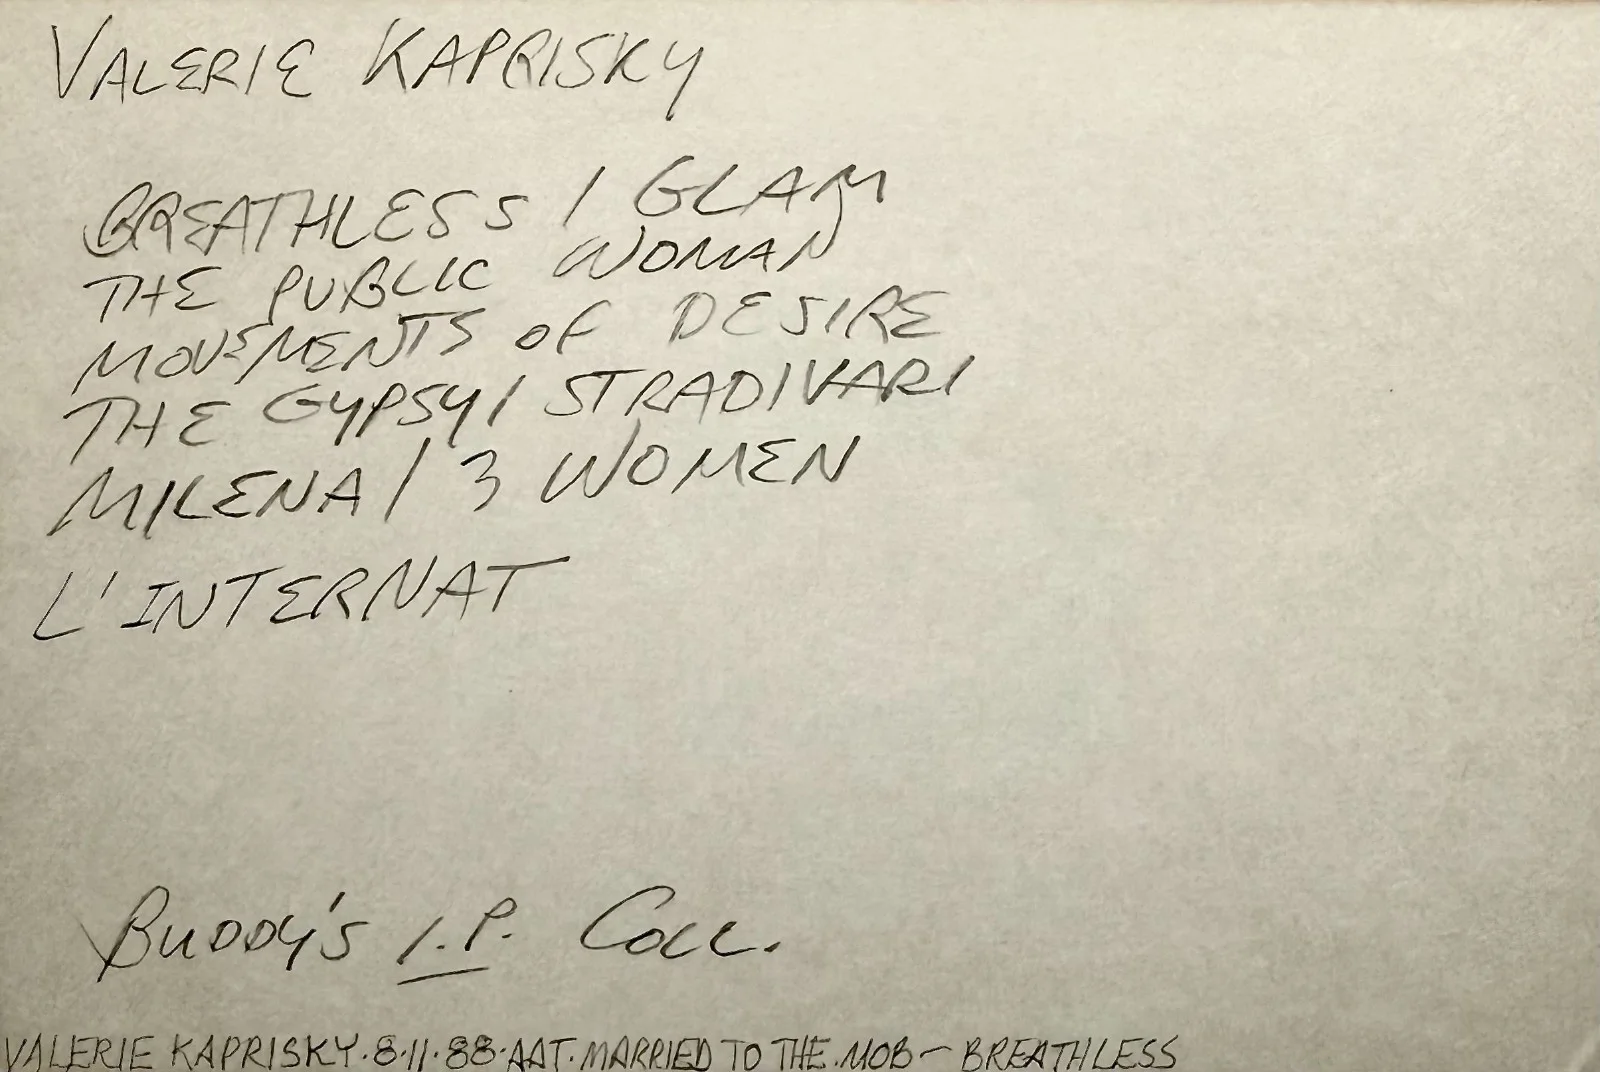 VALERIE KAPRISKY
BREATHLESS / GLAM
THE PUBLIC WOMAN
MOVEMENTS OF DESIRE
THE GYPSY / STRADIVARI
MILENA / 3 WOMEN
L'INTERNAT
BUDDY'S I.P. COLL.
VALERIE KAPRISKY·8·11·88·AAT·MARRIED TO THE MOB - BREATHLESS